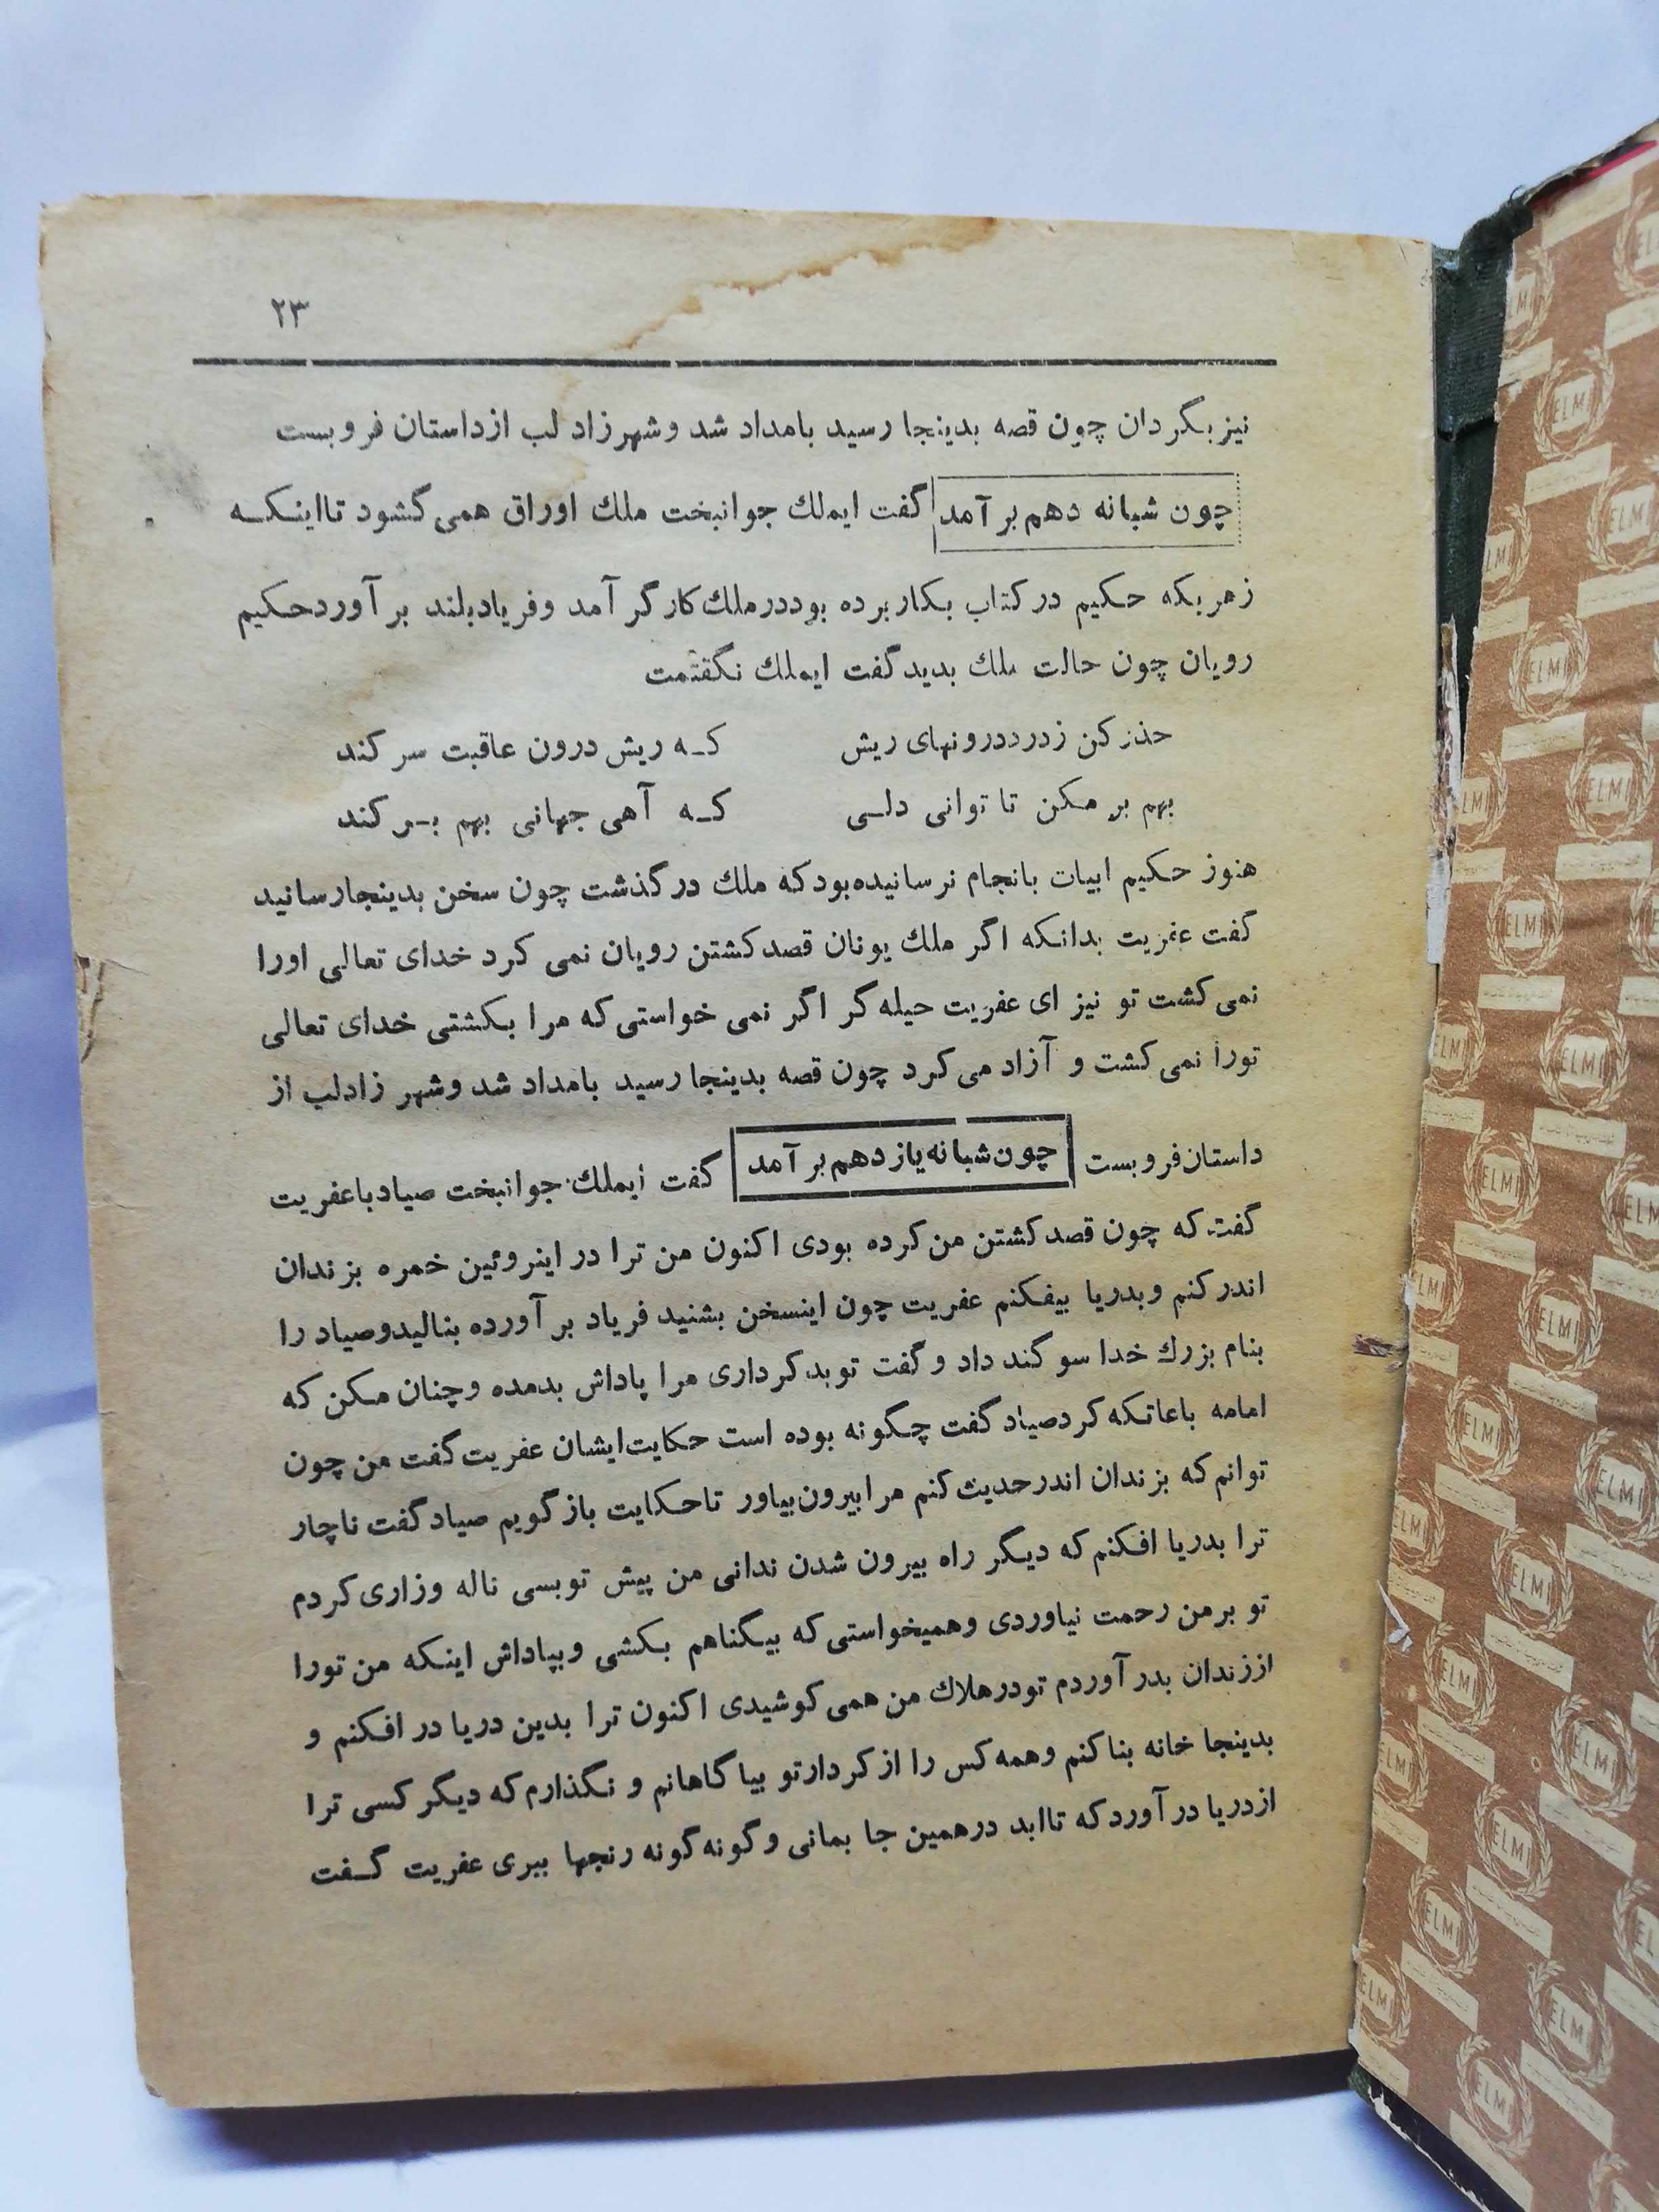 ۲۳
نیز بگردان چون قصه بدینجا رسید بامداد شد وشهرزاد لب ازداستان فروبست
چون شبانه دهم بر آمد گفت ایملك جوانبخت ملك اوراق همی گشود تااینکه
زهریکه حکیم در کتاب بکار برده بوددرملك کارگر آمد وفریادبلند بر آوردحکیم
رویان چون حالت ملك بدید گفت ایملك نگفتمت
حذر کن زدرددرونهای ریش که ریش درون عاقبت سر کند
بهم بر مکن تا توانی دلی که آهی جهانی بهم بر کند
هنوز حکیم ابیات بانجام نرسانیده بود که ملك در گذشت چون سخن بدینجارسانید
گفت عفریت بدانکه اگر ملك یونان قصد کشتن رویان نمی کرد خدای تعالی اورا
نمی کشت تو نیز ای عفریت حیله گر اگر نمی خواستی که مرا بکشتی خدای تعالی
تورا نمی کشت و آزاد می کرد چون قصه بدینجا رسید بامداد شد وشهر زادلب از
داستان فروبست چون شبانه یازدهم بر آمد گفت ایملك جوانبخت صیاد باعفریت
گفت که چون قصد کشتن من کرده بودی اکنون من ترا در اینروئین خمره بزندان
اندر کنم وبدریا بیفکنم عفریت چون اینسخن بشنید فریاد بر آورده بنالیدوصیاد را
بنام بزرك خدا سوگند داد و گفت توبدکرداری مرا پاداش بدمده وچنان مکن که
امامه باعاتکه کردصیاد گفت چگونه بوده است حکایت ایشان عفریت گفت من چون
توانم که بزندان اندرحدیث کنم مرا بیرون بیاور تاحکایت بازگویم صیاد گفت ناچار
ترا بدریا افکنم که دیگر راه بیرون شدن ندانی من پیش توبسی ناله وزاری کردم
تو برمن رحمت نیاوردی وهمیخواستی که بیگناهم بکشی وبپاداش اینکه من تورا
اززندان بدر آوردم تودرهلاك من همی کوشیدی اکنون ترا بدین دریا در افکنم و
بدینجا خانه بنا کنم وهمه کس را از کردارتو بیا گاهانم و نگذارم که دیگر کسی ترا
ازدریا در آورد که تاابد درهمین جا بمانی و گونه گونه رنجها ببری عفریت گفت
ELMI